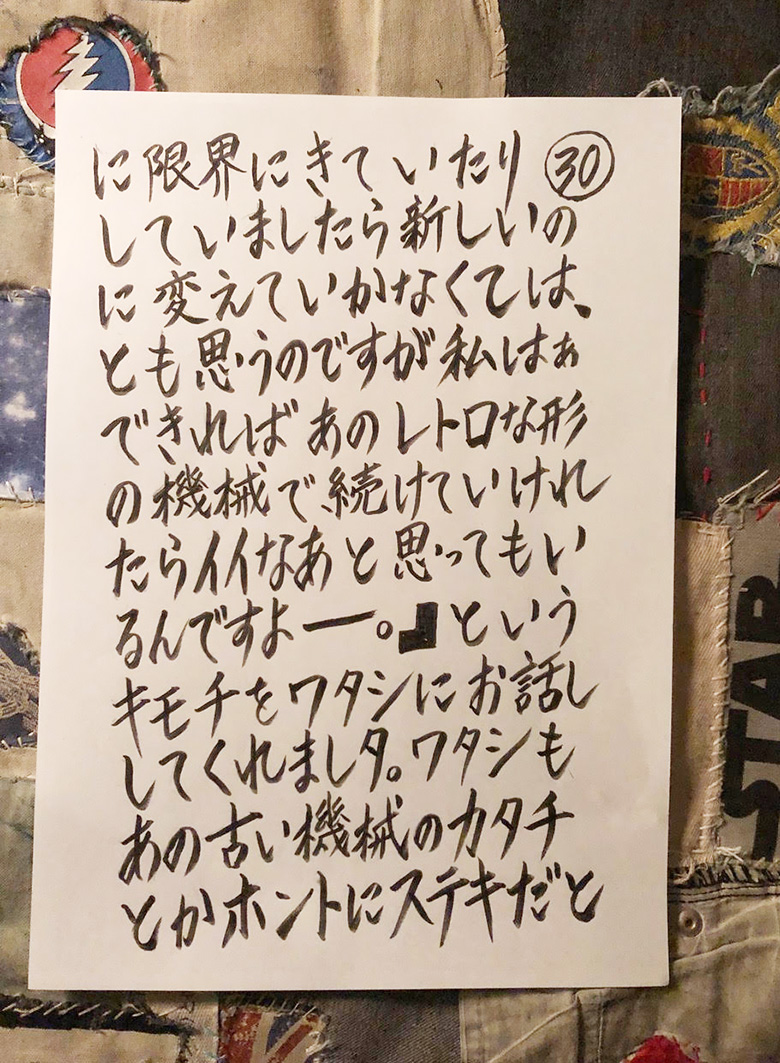 に限界にきていたり ㉚
していましたら新しいの
に変えていかなくては、
とも思うのですが私はぁ
できればあのレトロな形
の機械で続けていけれ
たらイイなあと思ってもい
るんですよー。』という
キモチをワタシにお話し
してくれましタ。ワタシも
あの古い機械のカタチ
とかホントにステキだと
STAR